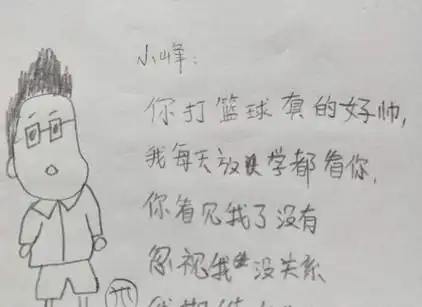 小峰:
你打篮球真的好帅,
我每天放学都看你,
你看见我了没有
忽视我 没关系
我